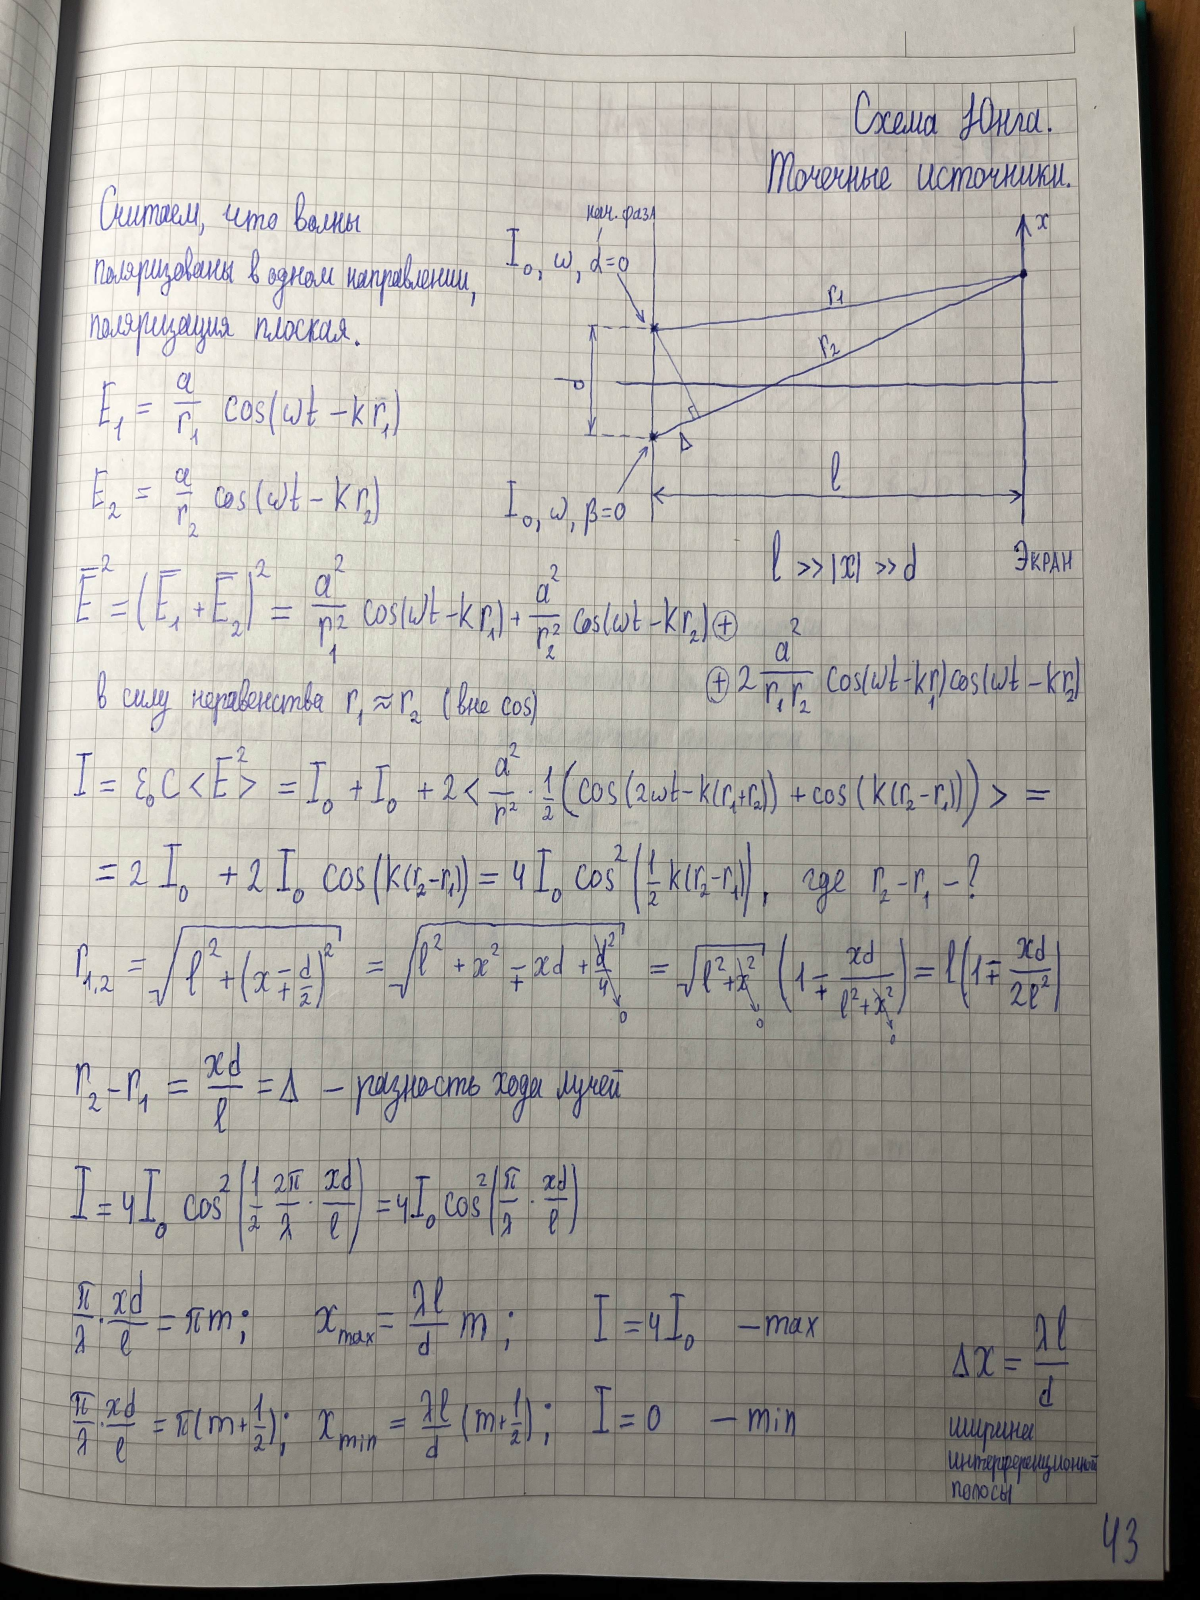 Схема Юнга.
Точечные источники.
Считаем, что волны
поляризованы в одном направлении,
поляризация плоская.
нач. фаза
I₀, ω, α=0
x
r₁
r₂
d
Δ
l
I₀, ω, β=0
l >> |x| >> d
Экран
E₁ = a/r₁ cos(ωt − kr₁)
E₂ = a/r₂ cos(ωt − kr₂)
E̅² = (E̅₁ + E̅₂)² = a²/r₁² cos(ωt − kr₁) + a²/r₂² cos(ωt − kr₂) ⊕
⊕ 2 a²/(r₁r₂) cos(ωt − kr₁) cos(ωt − kr₂)
в силу неравенства r₁ ≈ r₂ (вне cos)
I = ε₀c<E̅²> = I₀ + I₀ + 2< a²/r² · 1/2 (cos(2ωt − k(r₁+r₂)) + cos(k(r₂−r₁))) > =
= 2I₀ + 2I₀ cos(k(r₂−r₁)) = 4I₀ cos²(1/2 k(r₂−r₁)), где r₂ − r₁ − ?
r₁,₂ = √(l² + (x ∓ d/2)²) = √(l² + x² ∓ xd + d²/4 → 0) = √(l² + x² → 0) (1 ∓ xd/(l² + x² → 0)) = l(1 ∓ xd/2l²)
r₂ − r₁ = xd/l = Δ − разность хода лучей
I = 4I₀ cos²(1/2 2π/λ · xd/l) = 4I₀ cos²(π/λ · xd/l)
π/λ · xd/l = πm; x_max = λl/d m; I = 4I₀ − max
π/λ · xd/l = π(m + 1/2); x_min = λl/d (m + 1/2); I = 0 − min
Δx = λl/d
ширина
интерференционной
полосы
43